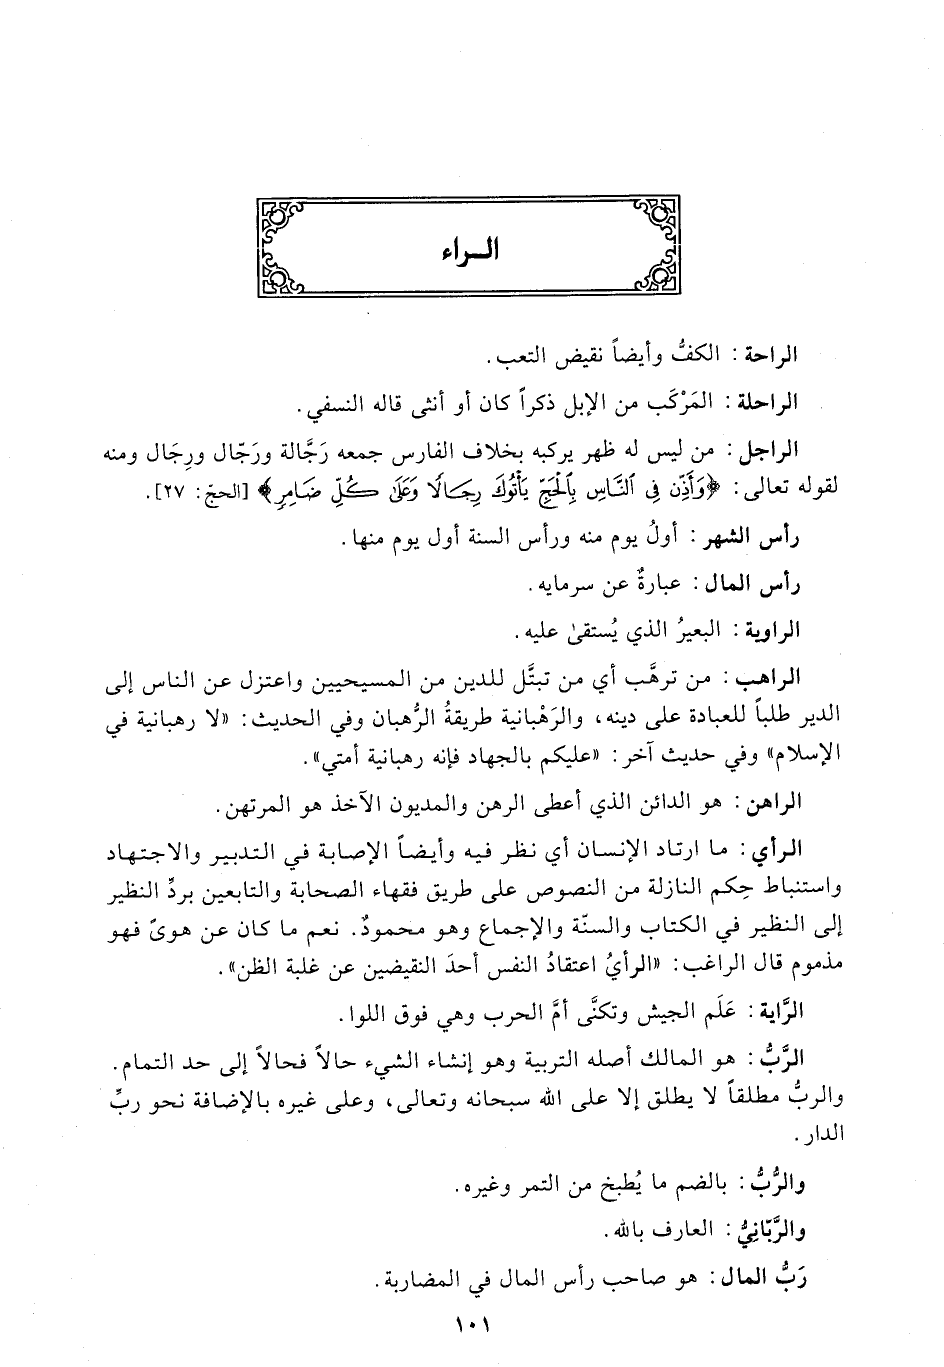 الـراء
الراحة : الكفُّ وأيضاً نقيض التعب .
الراحلة : المَرْكَب من الإبل ذكراً كان أو أنثى قاله النسفي .
الراجل : من ليس له ظهر يركبه بخلاف الفارس جمعه رَجَّالة ورَجّال ورِجَال ومنه
لقوله تعالى : ﴿وَأَذِّن فِى ٱلنَّاسِ بِٱلْحَجِّ يَأْتُوكَ رِجَالًا وَعَلَىٰ كُلِّ ضَامِرٍ﴾ [الحجّ: ٢٧].
رأس الشهر : أولُ يوم منه ورأس السنة أول يوم منها .
رأس المال : عبارةٌ عن سرمايه .
الراوية : البعيرُ الذي يُستقىٰ عليه .
الراهب : من ترهَّب أي من تبتَّل للدين من المسيحيين واعتزل عن الناس إلى
الدير طلباً للعبادة على دينه، والرَهْبانية طريقةُ الرُّهبان وفي الحديث : «لا رهبانية في
الإسلام» وفي حديث آخر : «عليكم بالجهاد فإنه رهبانية أمتي» .
الراهن : هو الدائن الذي أعطى الرهن والمديون الآخذ هو المرتهن .
الرأي : ما ارتاد الإنسان أي نظر فيه وأيضاً الإصابة في التدبير والاجتهاد
واستنباط حِكم النازلة من النصوص على طريق فقهاء الصحابة والتابعين بردِّ النظير
إلى النظير في الكتاب والسنّة والإجماع وهو محمودٌ. نعم ما كان عن هوىً فهو
مذموم قال الراغب : «الرأيُ اعتقادُ النفس أحدَ النقيضين عن غلبة الظن» .
الرَّاية : عَلَم الجيش وتكنَّى أمَّ الحرب وهي فوق اللوا .
الرَّبُّ : هو المالك أصله التربية وهو إنشاء الشيء حالاً فحالاً إلى حد التمام .
والربُّ مطلقاً لا يطلق إلا على الله سبحانه وتعالى، وعلى غيره بالإضافة نحو ربِّ
الدار .
والرُّبُّ : بالضم ما يُطبخ من التمر وغيره .
والرَّبّانِيُّ : العارف بالله .
رَبُّ المال : هو صاحب رأس المال في المضاربة .
١٠١